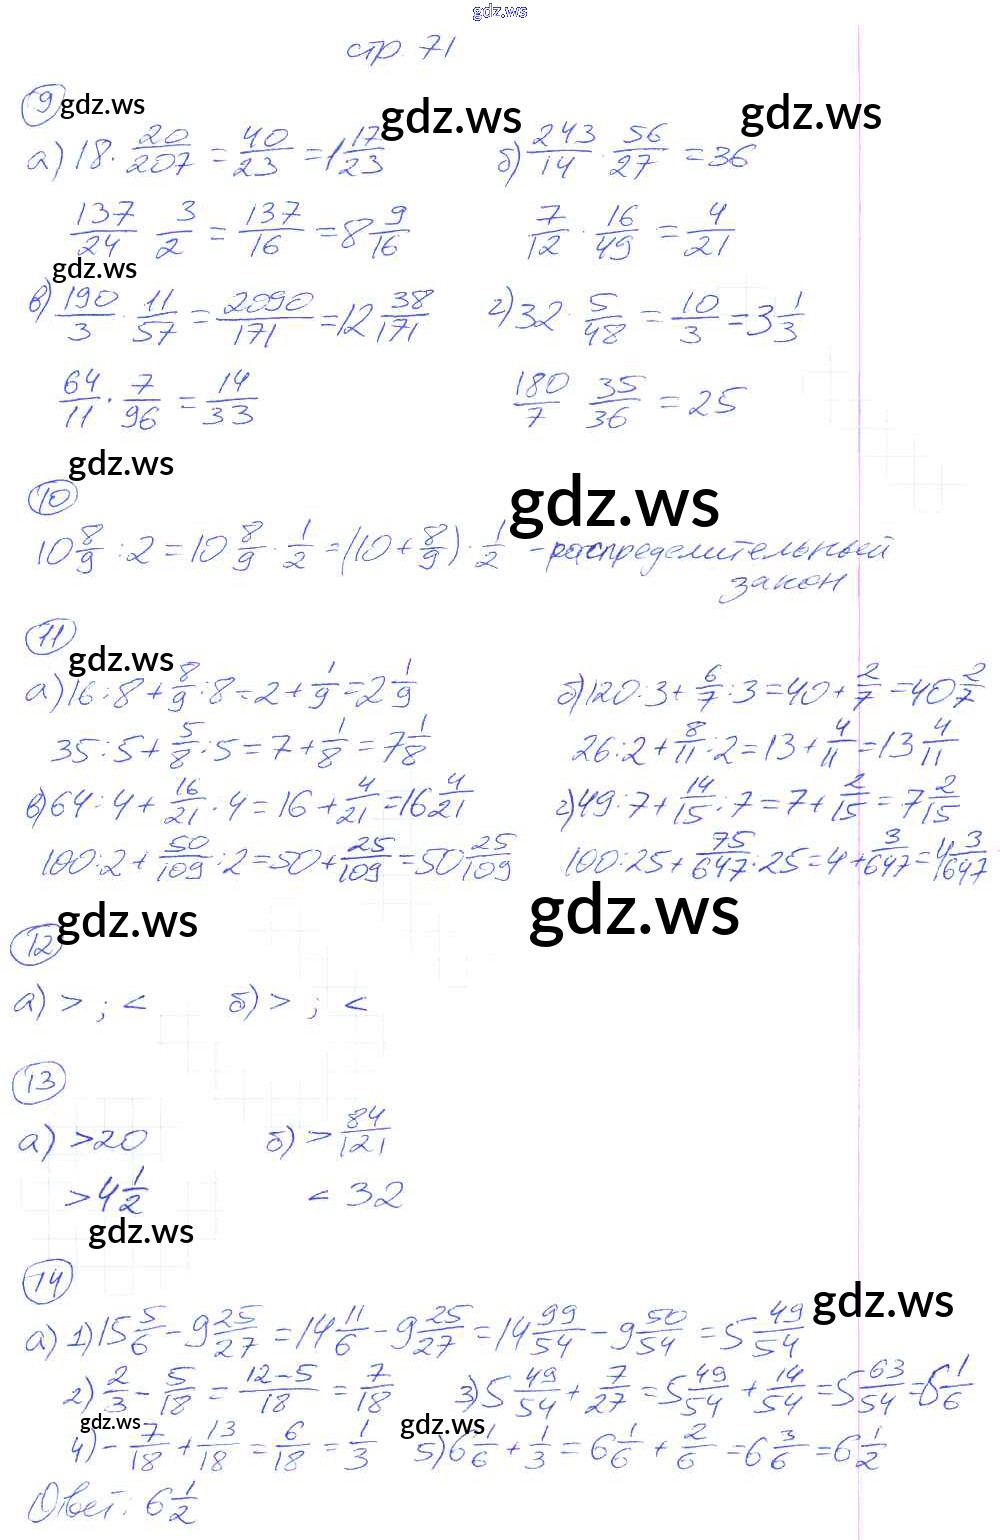 gdz.ws
стр. 71
9 gdz.ws gdz.ws gdz.ws
а) 18 · 20/207 = 40/23 = 1 17/23 б) 243/14 · 56/27 = 36
137/24 3/2 = 137/16 = 8 9/16 7/12 · 16/49 = 4/21
gdz.ws
в) 190/3 · 11/57 = 2090/171 = 12 38/171 г) 32 · 5/48 = 10/3 = 3 1/3
64/11 · 7/96 = 14/33 180/7 35/36 = 25
gdz.ws
10 gdz.ws
10 8/9 : 2 = 10 8/9 · 1/2 = (10 + 8/9) · 1/2 - распределительный
закон
11 gdz.ws
а) 16 : 8 + 8/9 : 8 = 2 + 1/9 = 2 1/9 б) 120 : 3 + 6/7 : 3 = 40 + 2/7 = 40 2/7
35 : 5 + 5/8 : 5 = 7 + 1/8 = 7 1/8 26 : 2 + 8/11 : 2 = 13 + 4/11 = 13 4/11
в) 64 : 4 + 16/21 : 4 = 16 + 4/21 = 16 4/21 г) 49 : 7 + 14/15 : 7 = 7 + 2/15 = 7 2/15
100 : 2 + 50/109 : 2 = 50 + 25/109 = 50 25/109 100 : 25 + 75/647 : 25 = 4 + 3/647 = 4 3/647
gdz.ws gdz.ws
12
а) > ; < б) > ; <
13
а) > 20 б) > 84/121
> 4 1/2 < 32
gdz.ws
14 gdz.ws
а) 1) 15 5/6 - 9 25/27 = 14 11/6 - 9 25/27 = 14 99/54 - 9 50/54 = 5 49/54
2) 2/3 - 5/18 = 12-5/18 = 7/18 3) 5 49/54 + 7/27 = 5 49/54 + 14/54 = 5 63/54 = 6 1/6
gdz.ws gdz.ws
4) - 7/18 + 13/18 = 6/18 = 1/3 5) 6 1/6 + 1/3 = 6 1/6 + 2/6 = 6 3/6 = 6 1/2
Ответ: 6 1/2